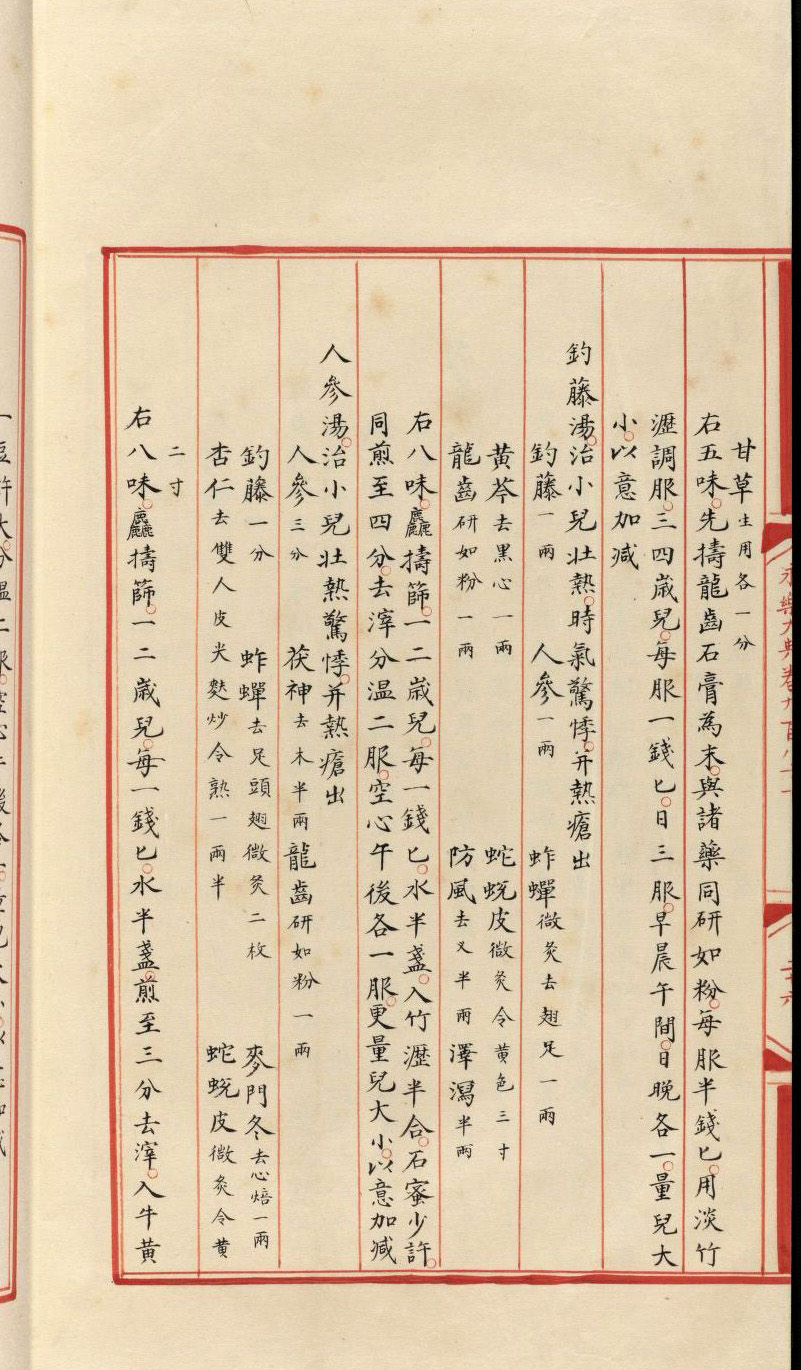 甘草生用各一分
右五味先擣龍齒石膏為末與諸藥同研如粉每服半錢匕用淡竹
瀝調服三四歲兒每服一錢匕日三服早晨午間日晚各一量兒大
小以意加減
釣藤湯治小兒壯熱時氣驚悸并熱瘡出
釣藤一兩 人參一兩 蚱蟬微炙去翅足一兩
黃芩去黑心一兩 蛇蛻皮微炙令黃色三寸
龍齒研如粉一兩 防風去叉半兩 澤瀉半兩
右八味麤擣篩一二歲兒每一錢匕水半盞入竹瀝半合石蜜少許
同煎至四分去滓分溫二服空心午後各一服更量兒大小以意加減
人參湯治小兒壯熱驚悸并熱瘡出
人參三分 茯神去木半兩 龍齒研如粉一兩
釣藤一分 蚱蟬去足頭翅微炙二枚 麥門冬去心焙一兩
杏仁去雙人皮尖麩炒令熟一兩半 蛇蛻皮微炙令黃
二寸
右八味麤擣篩一二歲兒每一錢匕水半盞煎至三分去滓入牛黃